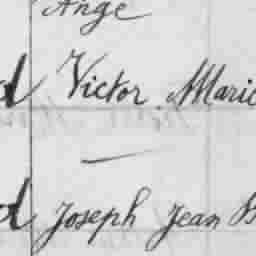 Ange
d Victor Marie
d Joseph Jean B